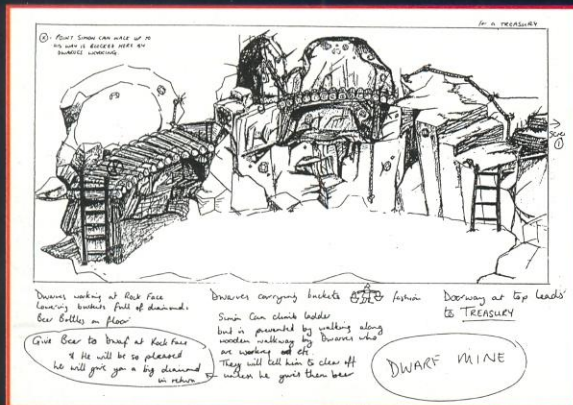 for a TREASURY
(X) - POINT SIMON CAN WALK UP TO
HIS WAY IS BLOCKED HERE BY
DWARVES WORKING.
Scr
①
Dwarves working at Rock Face
Lowering buckets full of diamonds.
Beer Bottles on floor
Give Beer to Dwarf at Rock Face
& He will be so pleased
he will give you a big diamond
in return
Dwarves carrying buckets fashion
Simon Can climb ladder
but is prevented by walking along
wooden walkway by Dwarves who
are working etc.
They will tell him to clear off
unless he gives them beer
Doorway at top leads
to TREASURY
DWARF MINE